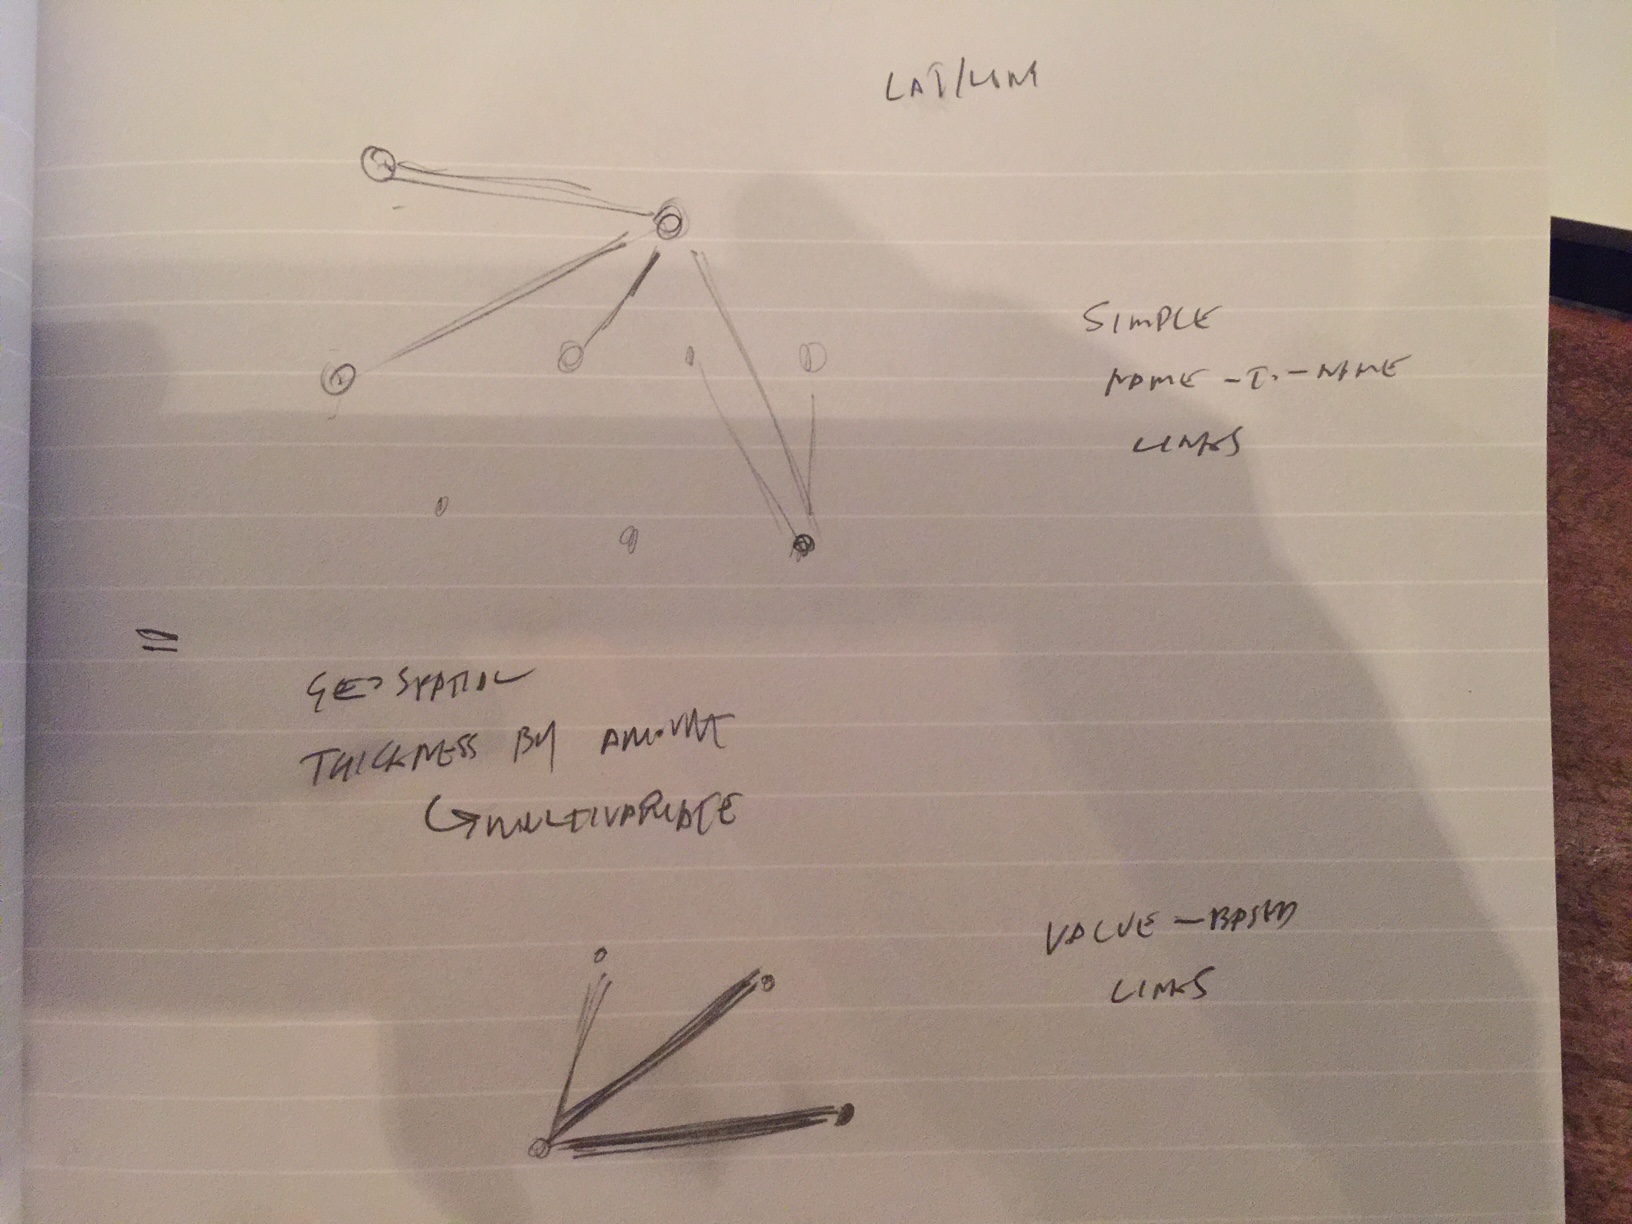 LAT/LON
SIMPLE
NAME-TO-NAME
LINKS
=
GEOSPATIAL
THICKNESS BY AMOUNT
↳ MULTIVARIATE
VALUE-BASED
LINKS